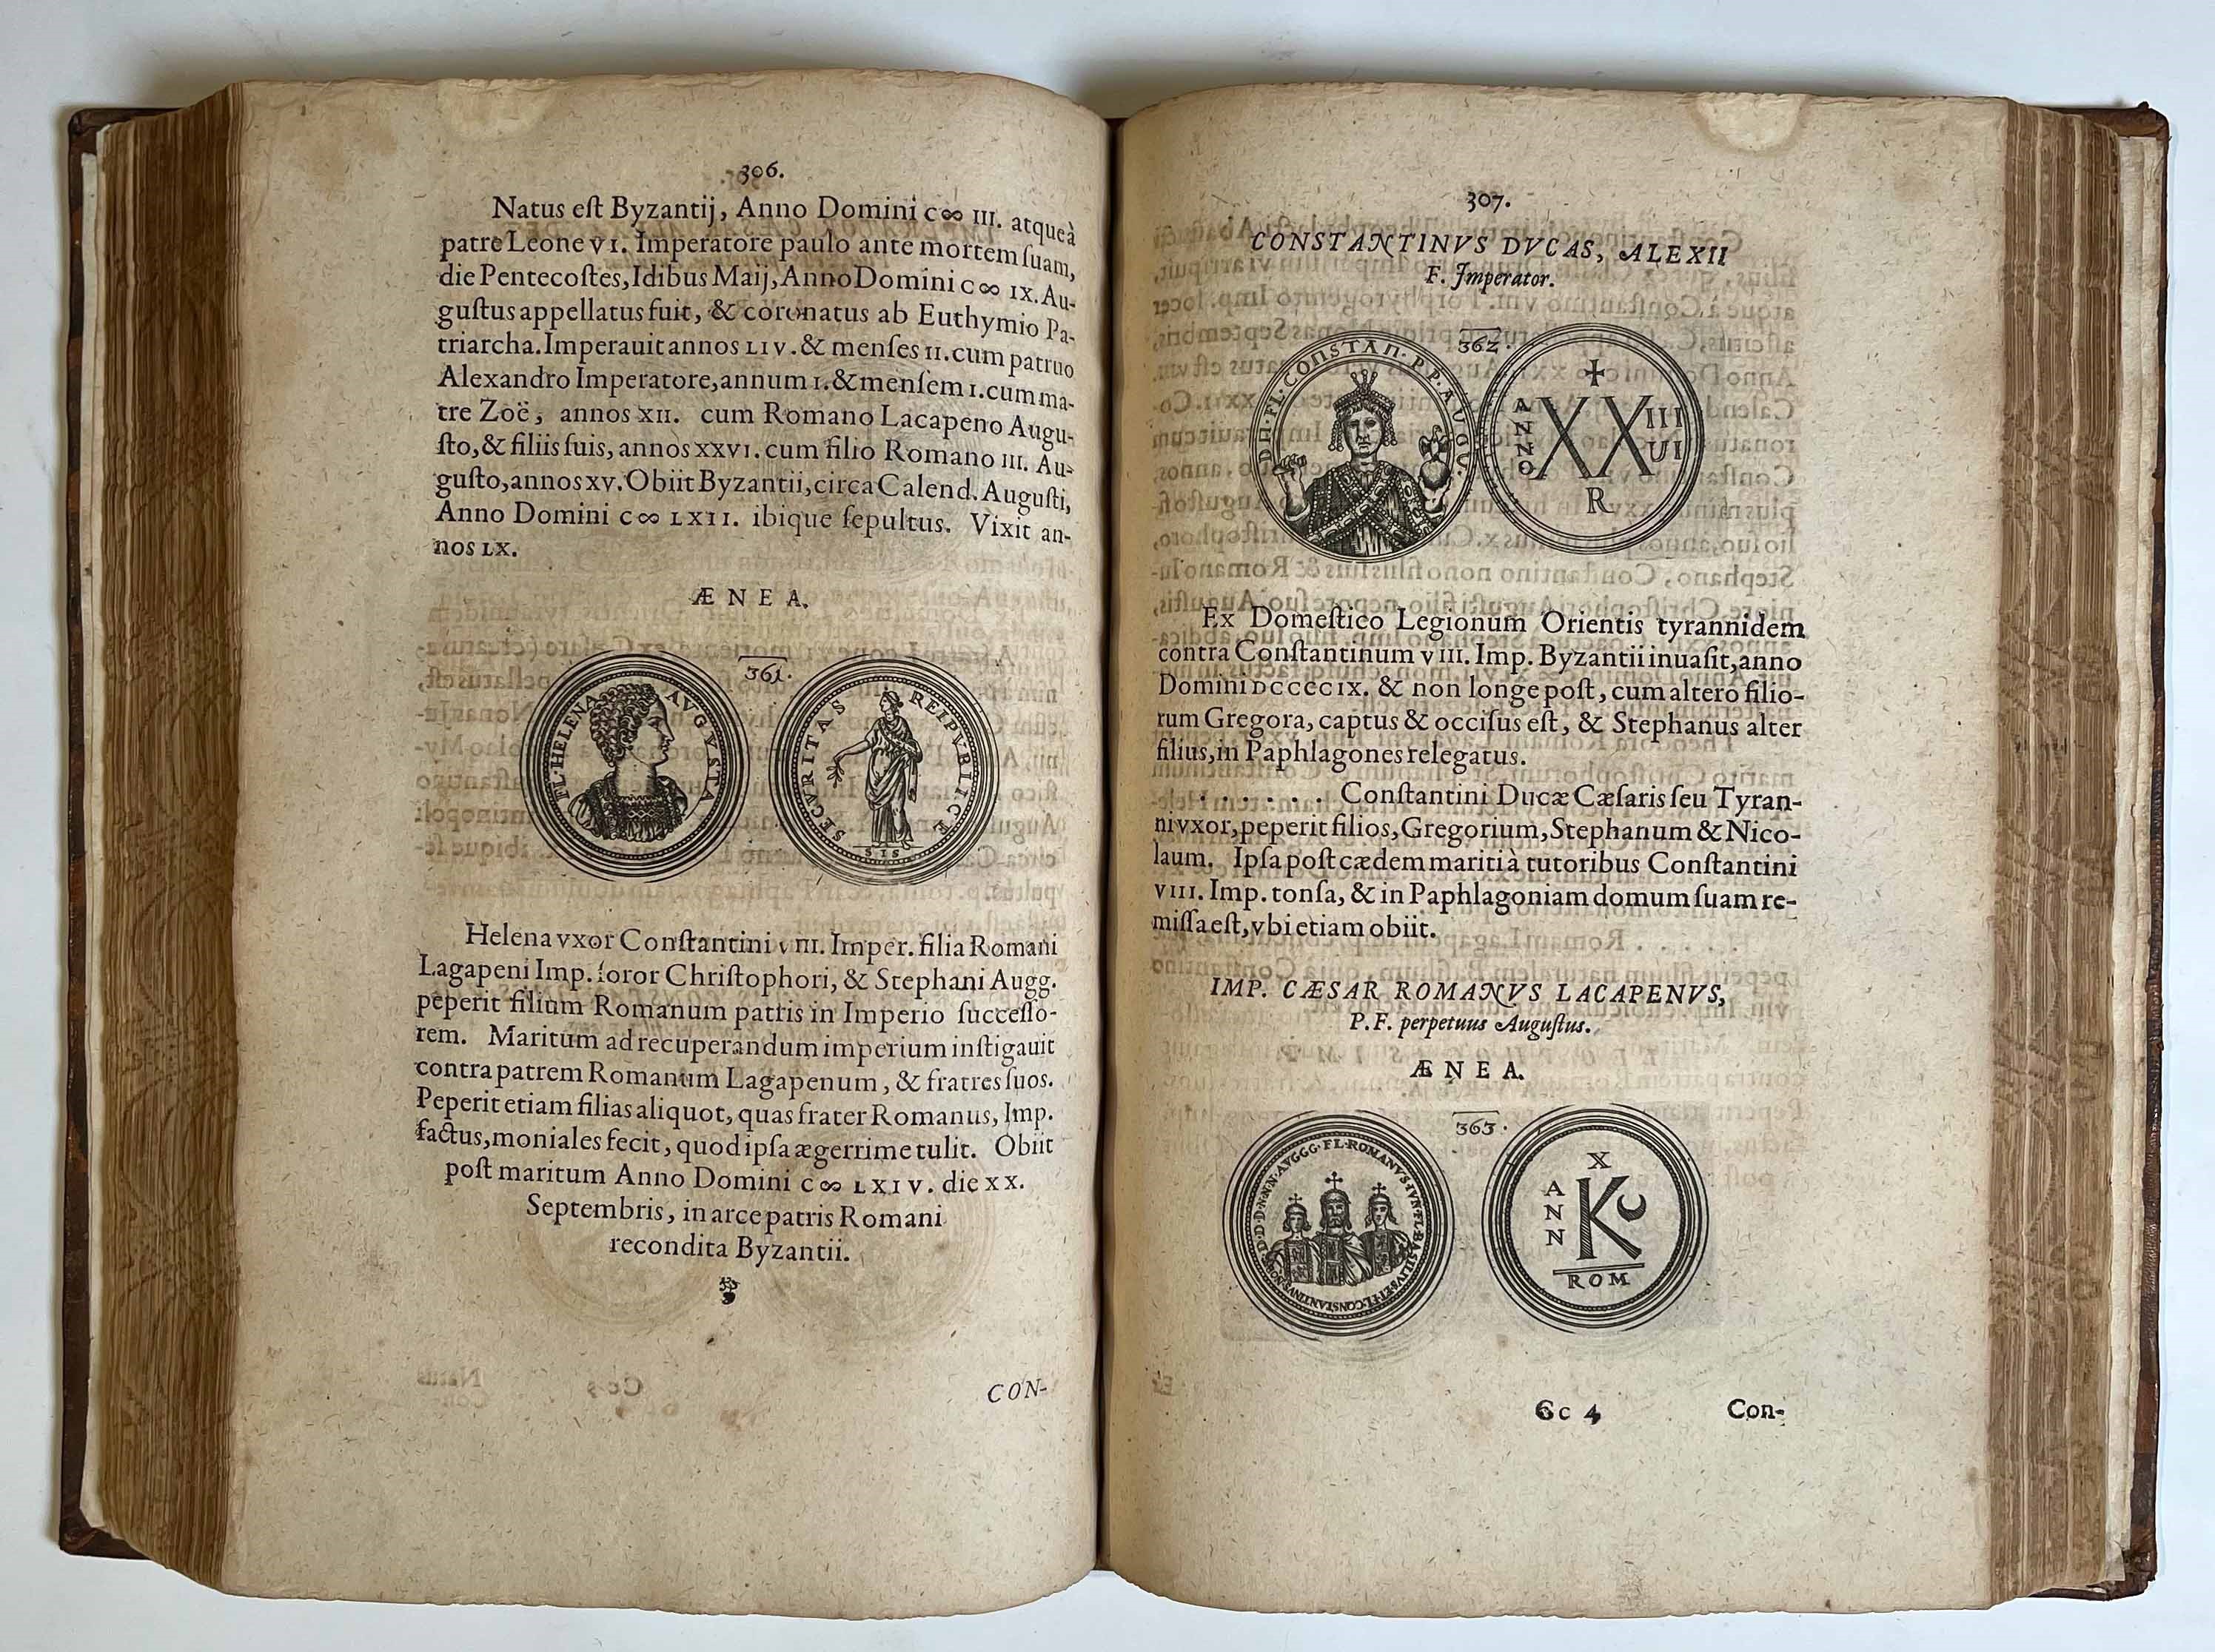 306.
Natus eſt Byzantij, Anno Domini c∞ III. atque à
patre Leone VI. Imperatore paulo ante mortem ſuam,
die Pentecoſtes, Idibus Maij, Anno Domini c∞ IX. Au-
guſtus appellatus fuit, & coronatus ab Euthymio Pa-
triarcha. Imperauit annos LIV. & menſes II. cum patruo
Alexandro Imperatore, annum I. & menſem I. cum ma-
tre Zoë, annos XII. cum Romano Lacapeno Augu-
ſto, & filiis ſuis, annos XXVI. cum filio Romano III. Au-
guſto, annos XV. Obiit Byzantii, circa Calend. Auguſti,
Anno Domini c∞ LXII. ibique ſepultus. Vixit an-
nos LX.
ÆNEA.
361.
FL·HELENA AVGVSTA
SECVRITAS REIPVBLICE
SIS
Helena vxor Conſtantini VIII. Imper. filia Romani
Lagapeni Imp. ſoror Chriſtophori, & Stephani Augg.
peperit filium Romanum patris in Imperio ſucceſſo-
rem. Maritum ad recuperandum imperium inſtigauit
contra patrem Romanum Lagapenum, & fratres ſuos.
Peperit etiam filias aliquot, quas frater Romanus, Imp.
factus, moniales fecit, quod ipſa ægerrime tulit. Obiit
poſt maritum Anno Domini c∞ LXIV. die XX.
Septembris, in arce patris Romani
recondita Byzantii.
CON-
307.
CONSTANTINVS DVCAS, ALEXII
F. Imperator.
362.
DN·FL·CONSTAN·PP·AVGV·
ANNO XX III VI
R
Ex Domeſtico Legionum Orientis tyrannidem
contra Conſtantinum VIII. Imp. Byzantii inuaſit, anno
Domini DCCCCIX. & non longe poſt, cum altero filio-
rum Gregora, captus & occiſus eſt, & Stephanus alter
filius, in Paphlagones relegatus.
. . . . . . Conſtantini Ducæ Cæſaris ſeu Tyran-
ni vxor, peperit filios, Gregorium, Stephanum & Nico-
laum. Ipſa poſt cædem mariti à tutoribus Conſtantini
VIII. Imp. tonſa, & in Paphlagoniam domum ſuam re-
miſſa eſt, vbi etiam obiit.
IMP. CÆSAR ROMANVS LACAPENVS,
P. F. perpetuus Auguſtus.
ÆNEA.
363.
D·D·D·N·N·N·AVGGG·FL·ROMANVS·IVN·FL·BASILIVS·ET·FL·CONSTANTINVS·NOB
X
ANN K
ROM
Cc 4
Con-